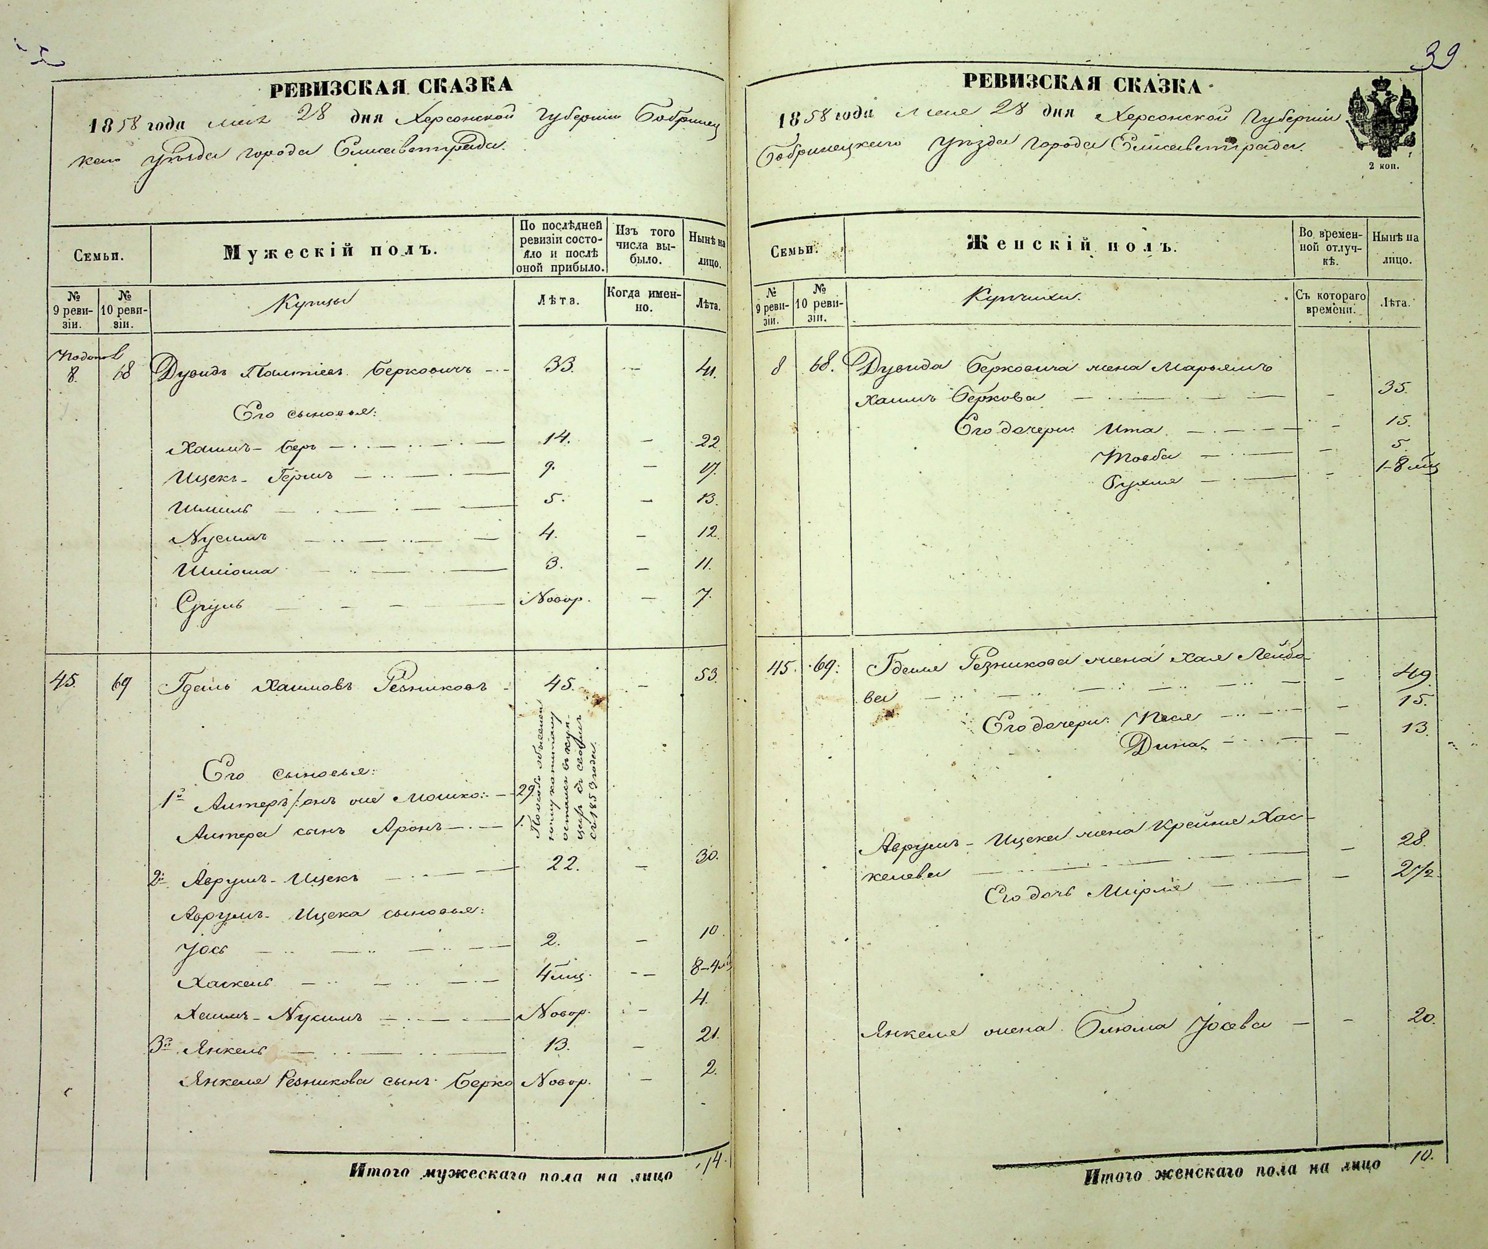 РЕВИЗСКАЯ СКАЗКА
1858 года мая 28 дня Херсонской Губернии Бобринец
каго уѣзда города Елисаветграда.
Семьи.
Мужескій полъ.
По послѣдней ревизіи состояло и послѣ оной прибыло.
Изъ того числа выбыло.
Нынѣ на лицо.
№ 9 ревизіи.
№ 10 ревизіи.
Купцы
Лѣта.
Когда именно.
Лѣта.
8. 68 Дувидъ Берковичъ 33. — 41.
Его сыновья:
Хаимъ-Беръ 14. — 22
Ицекъ-Гершъ 9. — 17.
Шмиль 5. — 13.
Нусимъ 4. — 12.
Шліома 3. — 11.
Сруль Новор. — 7.
45. 69 Гдаль Хаимовъ Резниковъ 45. — 53
Его сыновья:
1й Алтеръ/онъ же Мошко: 29
Алтера сынъ Аронъ 1.
съ 1853 года.
2й Аврумъ-Ицекъ 22. — 30.
Аврумъ-Ицека сыновья:
Іось 2. — 10
Хаскель 4 мц. — 8-4 мц
Хаимъ-Нусимъ Новор. — 4.
3й Янкель 13. — 21.
Янкеля Резникова сынъ Берко Новор. — 2.
Итого мужескаго пола на лицо 14.
39
РЕВИЗСКАЯ СКАЗКА
1858 года мая 28 дня Херсонской Губерніи
Бобринецкаго уѣзда города Елисаветграда.
2 коп.
Семьи.
Женскій полъ.
Во временной отлучкѣ.
Нынѣ на лицо.
№ 9 ревизіи.
№ 10 ревизіи.
Купчихи.
Съ котораго времени.
Лѣта.
8 68. Дувида Берковича жена Марьямъ
Хаимъ Беркова — 35.
Его дочери: Ита — 15.
Товба — 5
Рухля — 1-8 мц
45. 69. Гдаля Резникова жена Хая Лейбо-
ва — 49.
Его дочери: Песя — 15.
Дина — 13.
Аврумъ-Ицека жена Крейня Хас-
келева — 28.
Его дочь Мирля — 2 1/2
Янкеля жена Блюма Іосева — 20.
Итого женскаго пола на лицо 10.